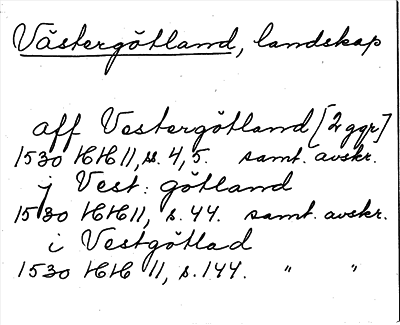 Västergötland, landskap
aff Vestergötland [2 ggr]
1530 HH 11, s. 4, 5. samt. avskr.
j Vest: götland
1530 HH 11, s. 44. samt. avskr.
i Vestgötlad
1530 HH 11, s. 144. " "